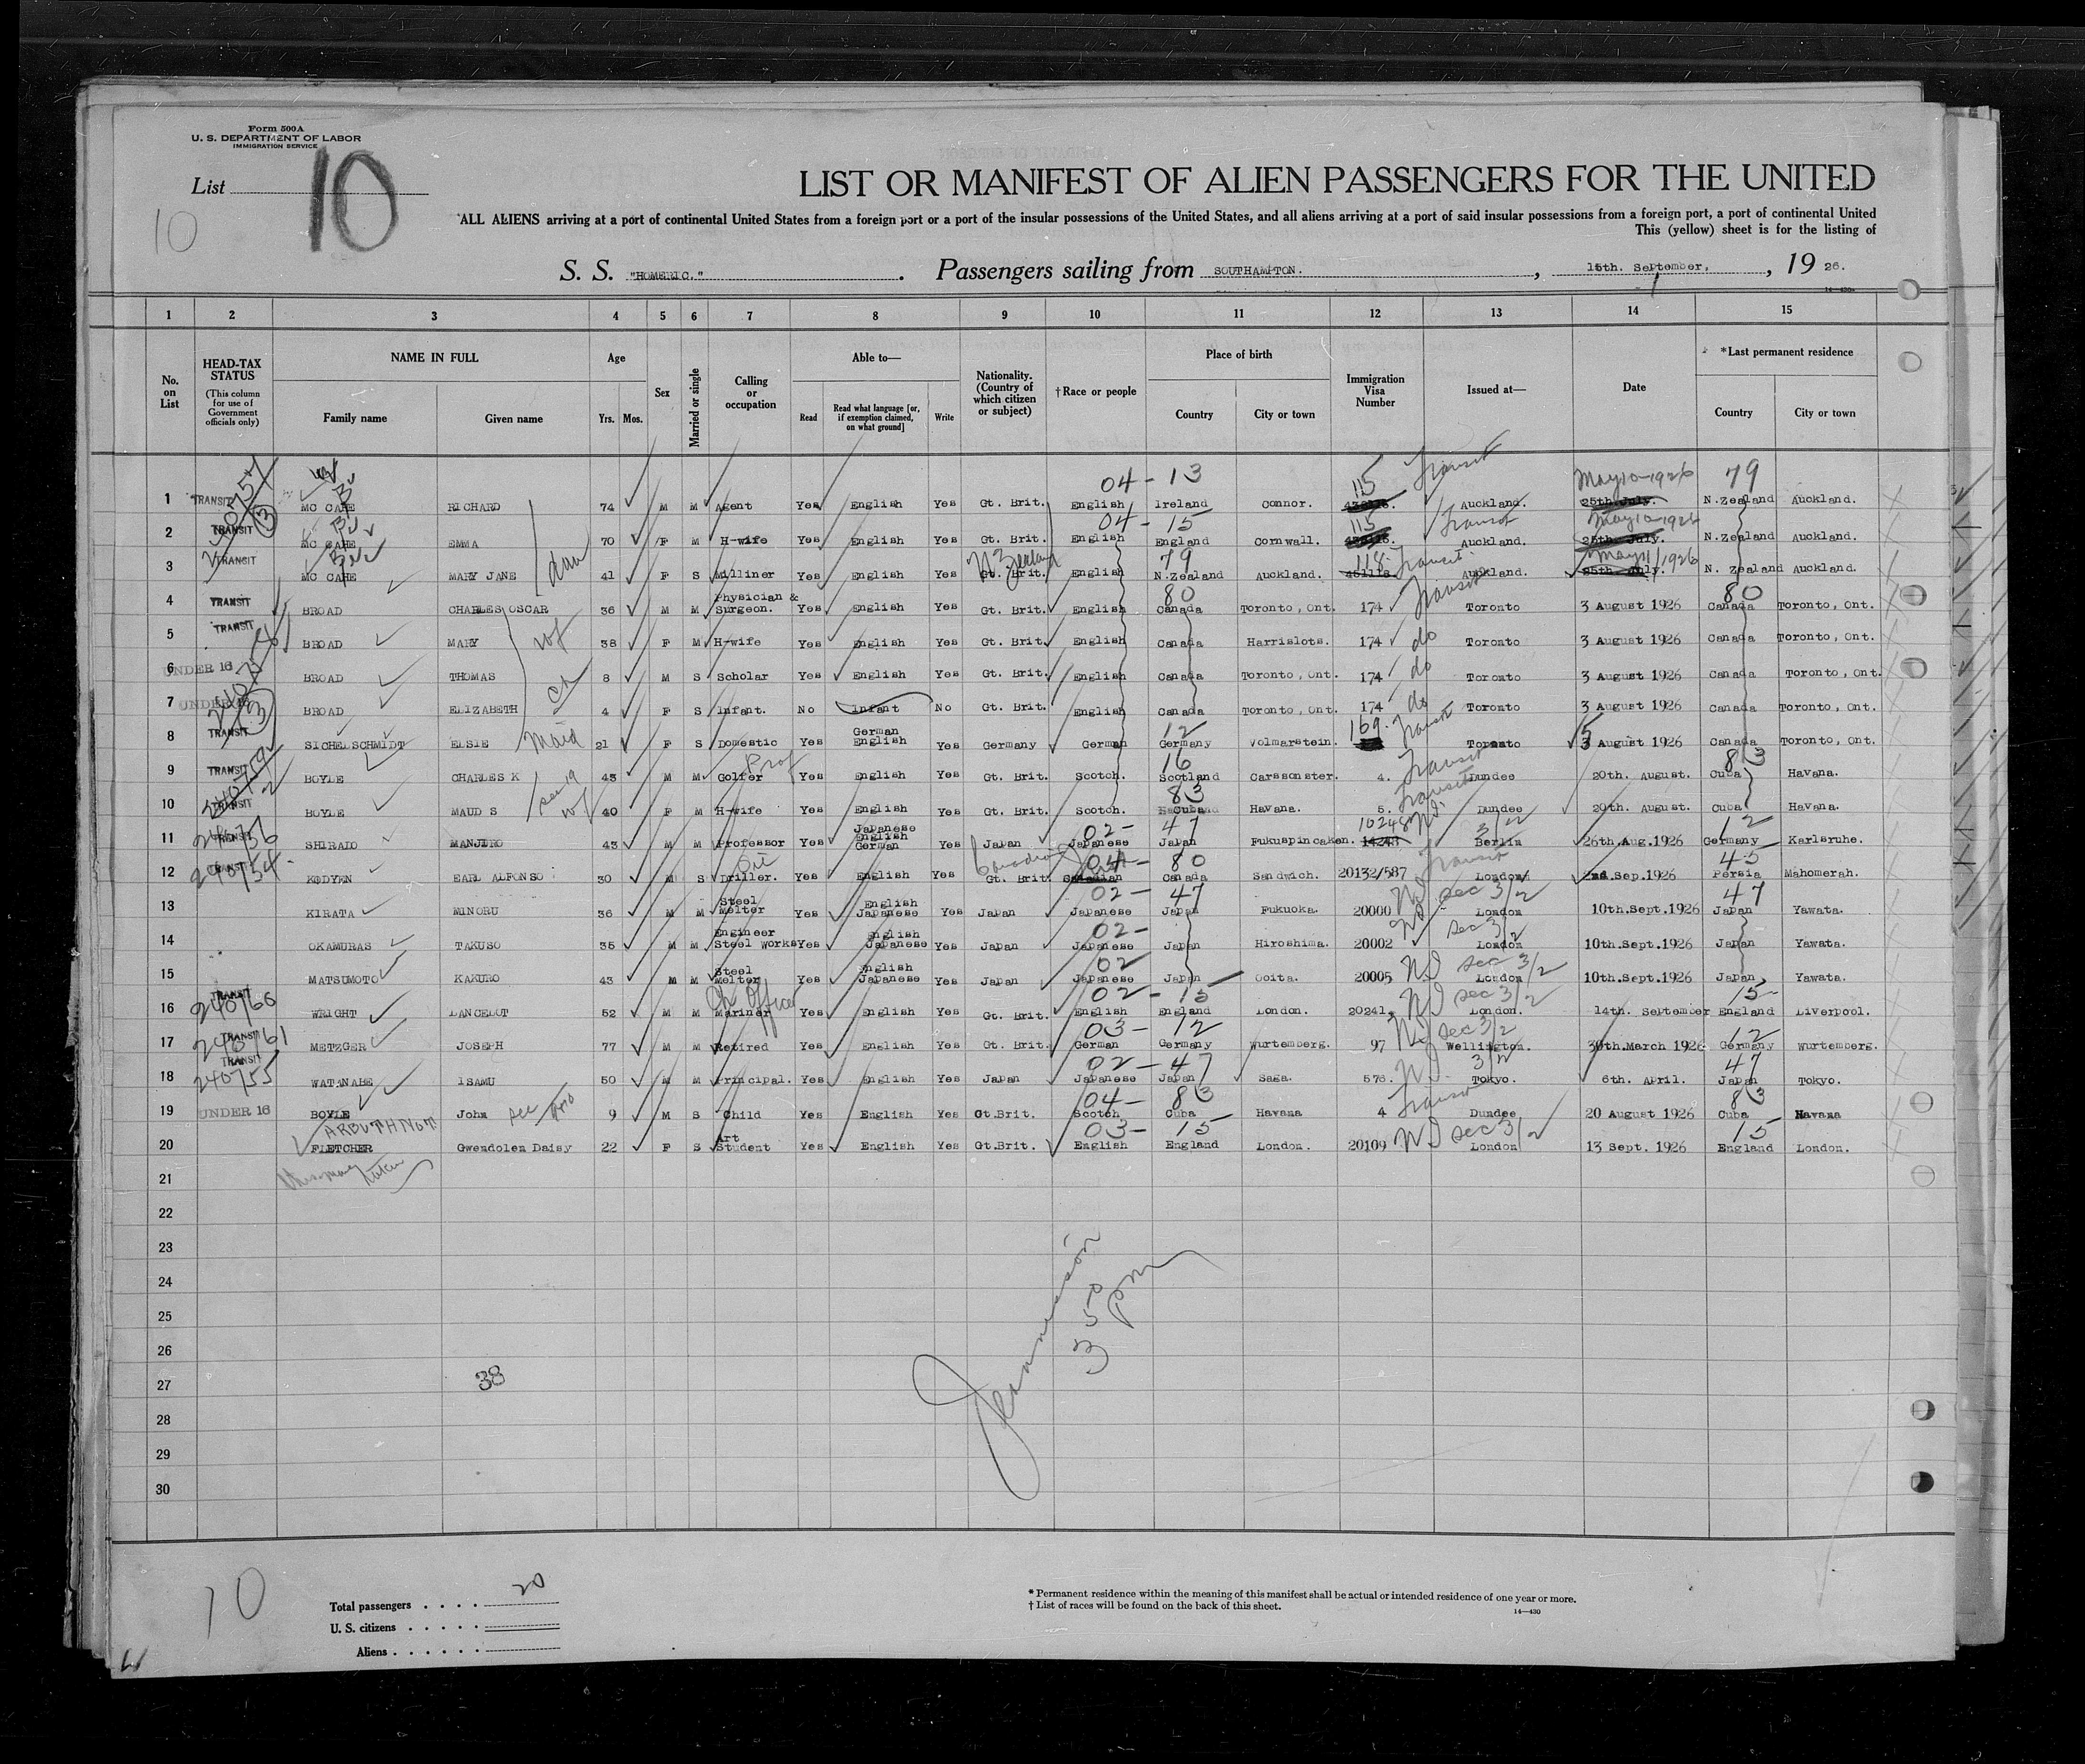 Form 500A
U. S. DEPARTMENT OF LABOR
IMMIGRATION SERVICE
List 10
10
LIST OR MANIFEST OF ALIEN PASSENGERS FOR THE UNITED
ALL ALIENS arriving at a port of continental United States from a foreign port or a port of the insular possessions of the United States, and all aliens arriving at a port of said insular possessions from a foreign port, a port of continental United
This (yellow) sheet is for the listing of
S. S. "HOMERIC." Passengers sailing from SOUTHAMPTON. , 15th. September, , 19 26.
14—430
1 2 3 4 5 6 7 8 9 10 11 12 13 14 15
No. on List
HEAD-TAX STATUS (This column for use of Government officials only)
NAME IN FULL Family name Given name
Age Yrs. Mos.
Sex
Married or single
Calling or occupation
Able to— Read Read what language [or, if exemption claimed, on what ground] Write
Nationality. (Country of which citizen or subject)
†Race or people
Place of birth Country City or town
Immigration Visa Number
Issued at—
Date
*Last permanent residence Country City or town
04 - 13 115 Transit May 10-1926 79
1 TRANSIT MC CABE RICHARD 74 M M Agent Yes English Yes Gt. Brit. English Ireland Connor. Auckland. 25th. July. N.Zealand Auckland.
04 - 15 115 Transit May 10-1926
2 TRANSIT MC CABE EMMA 70 F M H-wife Yes English Yes Gt. Brit. English England Cornwall. Auckland. 25th July. N.Zealand Auckland.
N Zealand 79 118 Transit May 11/1926
3 TRANSIT MC CABE MARY JANE dau 41 F S Milliner Yes English Yes Gt. Brit. English N.Zealand Auckland. Auckland. 25th July. N. Zealand Auckland.
80 Transit 80
4 TRANSIT BROAD CHARLES OSCAR 36 M M Physician & Surgeon. Yes English Yes Gt. Brit. English Canada Toronto, Ont. 174 Toronto 3 August 1926 Canada Toronto, Ont.
5 TRANSIT BROAD MARY wf 38 F M H-wife Yes English Yes Gt. Brit. English Canada Harrislots. 174 do Toronto 3 August 1926 Canada Toronto, Ont.
6 UNDER 16 BROAD THOMAS 8 M S Scholar Yes English Yes Gt. Brit. English Canada Toronto, Ont. 174 do Toronto 3 August 1926 Canada Toronto, Ont.
7 UNDER 16 BROAD ELIZABETH ch 4 F S Infant. No Infant No Gt. Brit. English Canada Toronto, Ont. 174 do Toronto 3 August 1926 Canada Toronto, Ont.
12 169. Transit 5
8 TRANSIT SICHELSCHMIDT ELSIE maid 21 F S Domestic Yes German English Yes Germany German Germany Volmarstein. Toronto 3 August 1926 Canada Toronto, Ont.
Prof 16 Transit 83
9 TRANSIT BOYLE CHARLES K see 19 45 M M Golfer Yes English Yes Gt. Brit. Scotch. Scotland Carssonster. 4. Dundee 20th. August. Cuba Havana.
83 Transit
10 TRANSIT BOYLE MAUD S wf 40 F M H-wife Yes English Yes Gt. Brit. Scotch. Cuba Havana. 5. Dundee 20th. August. Cuba Havana.
240756 02- 47 10248 ND 3/2 12
11 TRANSIT SHIRADO MANJIRO 43 M M Professor Yes Japanese English German Yes Japan Japanese Japan Fukuspincaken. 14248 Berlin 26th.Aug.1926 Germany Karlsruhe.
240754 Oil Canadian 04- 80 Transit 45
12 TRANSIT KODYEN EARL ALFONSO 30 M S Driller. Yes English Yes Gt. Brit. Canada Sandwich. 20132/587 London 2nd.Sep.1926 Persia Mahomerah.
02- 47 ND sec 3/2 47
13 KIRATA MINORU 36 M M Steel Melter Yes English Japanese Yes Japan Japanese Japan Fukuoka. 20000 London 10th.Sept.1926 Japan Yawata.
02- ND sec 3/2
14 OKAMURAS TAKUSO 35 M M Engineer Steel Works Yes English Japanese Yes Japan Japanese Japan Hiroshima. 20002 London 10th.Sept.1926 Japan Yawata.
02 ND sec 3/2
15 MATSUMOTO KAKURO 43 M M Steel Melter Yes English Japanese Yes Japan Japanese Japan Ooita. 20005 London 10th.Sept.1926 Japan Yawata.
240760 Ch Officer 02 - 15 ND sec 3/2 15
16 TRANSIT WRIGHT LANCELOT 52 M M Mariner Yes English Yes Gt. Brit. English England London. 20241. London. 14th. September England Liverpool.
240761 03- 12 ND sec 3/2 12
17 TRANSIT METZGER JOSEPH 77 M M Retired Yes English Yes Gt. Brit. German Germany Wurtemberg. 97 Wellington. 30th.March 1926 Germany Wurtemberg.
240755 02 - 47 ND 3/2 47
18 TRANSIT WATANABE ISAMU 50 M M Principal. Yes English Yes Japan Japanese Japan Saga. 576. Tokyo. 6th. April. Japan Tokyo.
04- 83 Transit 83
19 UNDER 16 BOYLE John see 9 M S Child Yes English Yes Gt.Brit. Scotch Cuba Havana 4 Dundee 20 August 1926 Cuba Havana
ARBUTHNOT 03- 15 ND sec 3/2 15
20 FLETCHER Gwendolen Daisy 22 F S Art Student Yes English Yes Gt.Brit. English England London. 20109 London 13 Sept. 1926 England London.
21
22
23
24
25
26
27 38
28
29
30
3 50 pm
10
Total passengers . . . . 20
U. S. citizens . . . . .
Aliens . . . . . .
* Permanent residence within the meaning of this manifest shall be actual or intended residence of one year or more.
† List of races will be found on the back of this sheet.
14—430